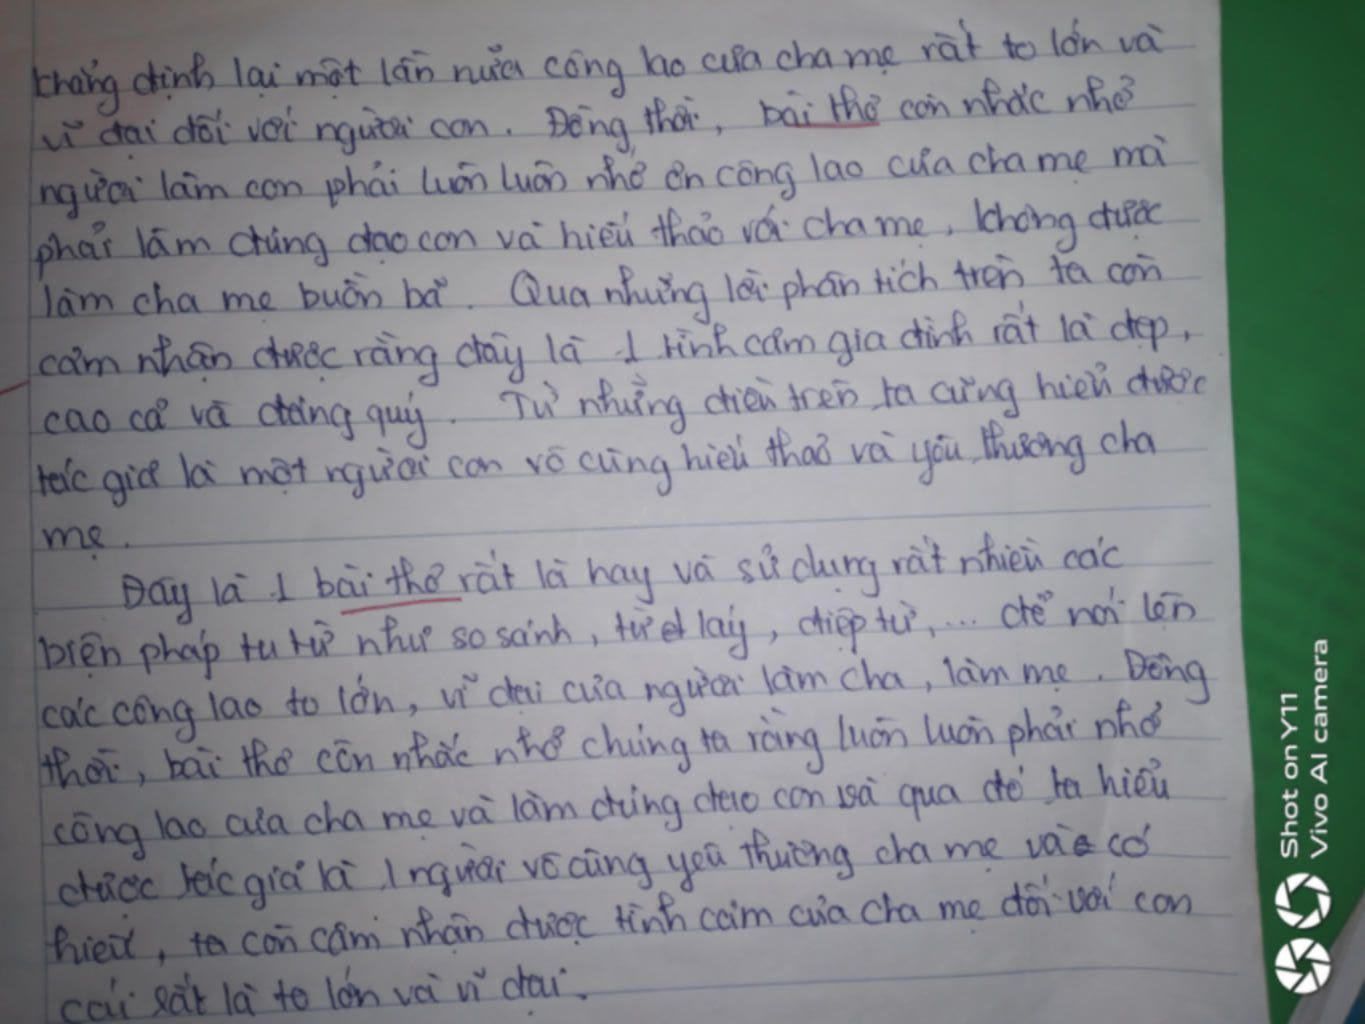 khẳng định lại một lần nữa công lao của cha mẹ rất to lớn và
vĩ đại đối với người con. Đồng thời, bài thơ còn nhắc nhở
người làm con phải luôn luôn nhớ ơn công lao của cha mẹ mà
phải làm đúng đạo con và hiếu thảo với cha mẹ, không được
làm cha mẹ buồn bã. Qua những lời phân tích trên ta còn
cảm nhận được rằng đây là 1 tình cảm gia đình rất là đẹp,
cao cả và đáng quý. Từ những điều trên ta cũng hiểu được
tác giả là một người con vô cùng hiếu thảo và yêu thương cha
mẹ.
Đây là 1 bài thơ rất là hay và sử dụng rất nhiều các
biện pháp tu từ như so sánh, từ láy, điệp từ, ... để nói lên
các công lao to lớn, vĩ đại của người làm cha, làm mẹ. Đồng
thời, bài thơ còn nhắc nhở chúng ta rằng luôn luôn phải nhớ
công lao của cha mẹ và làm đúng đạo con và qua đó ta hiểu
được tác giả là 1 người vô cùng yêu thương cha mẹ và có
hiếu, ta còn cảm nhận được tình cảm của cha mẹ đối với con
cái rất là to lớn và vĩ đại.
Shot on Y11
Vivo AI camera